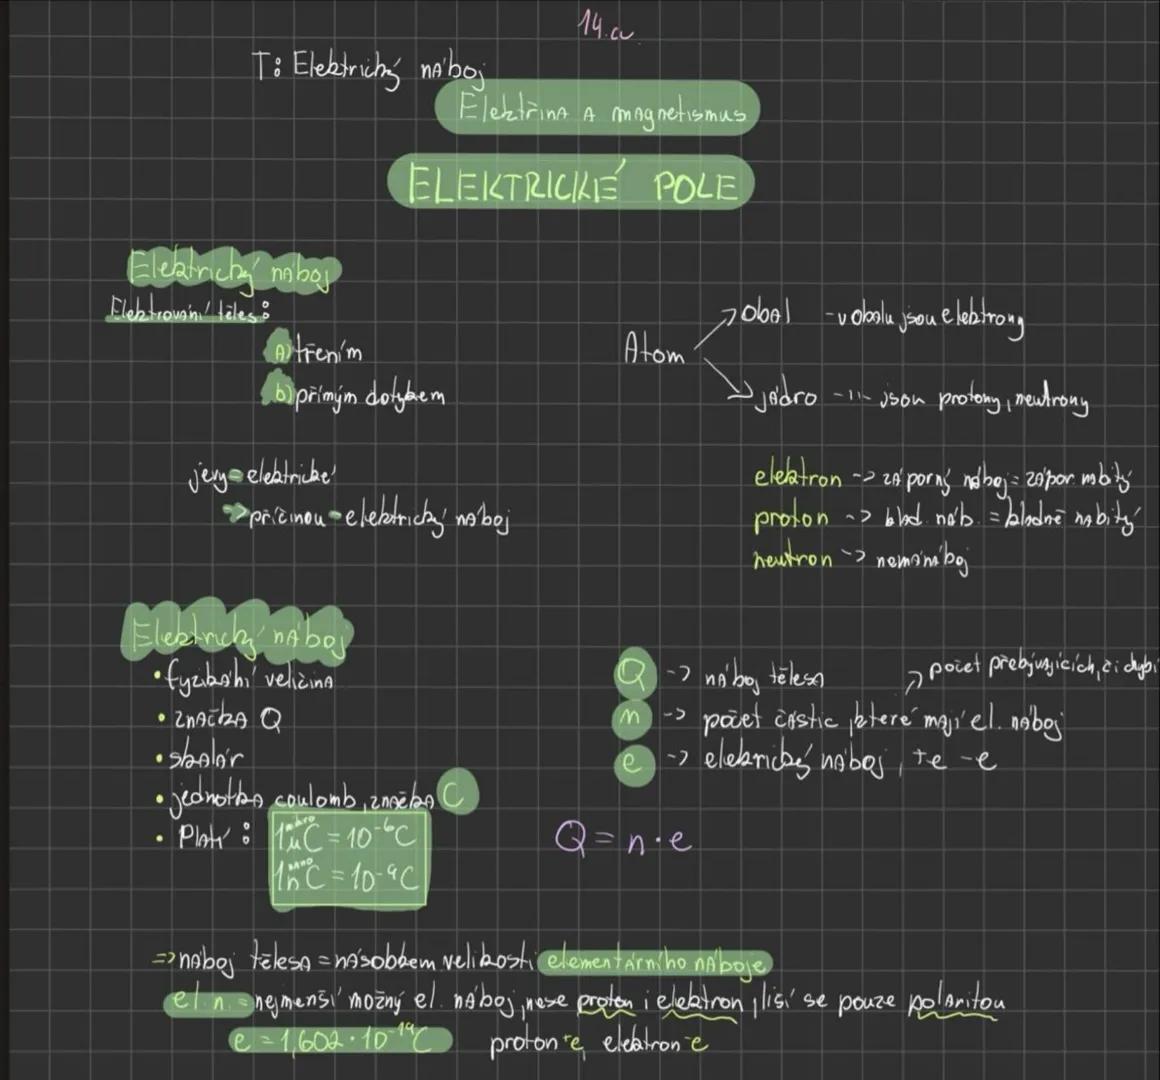 14.a
T: Elektrický náboj
Elektřina a magnetismus
ELEKTRICKÉ POLE
Elektrický náboj
Elektrování těles:
a) třením
b) přímým dotykem
jevy - elektrické
-> příčinou - elektrický náboj
Atom
Obal - v obalu jsou elektrony
jádro -"- jsou protony, neutrony
elektron -> záporný náboj = zápor. nabitý
proton -> klad. náb. = kladně nabitý
neutron -> nemá náboj
Elektrický náboj
• fyzikální veličina
• značka Q
• skalár
• jednotka coulomb, značka C
• Platí:
mikro
1μC = 10⁻⁶C
nano
1nC = 10⁻⁹C
Q -> náboj tělesa
počet přebývajících, či chybí
n -> počet částic, které mají el. náboj
e -> elekrický náboj, +e -e
Q = n · e
=> náboj tělesa = násobkem velikosti elementárního náboje
el. n. = nejmenší možný el. náboj, nese proton i elektron, liší se pouze polaritou
e = 1,602 · 10⁻¹⁹C proton +e, elektron -e